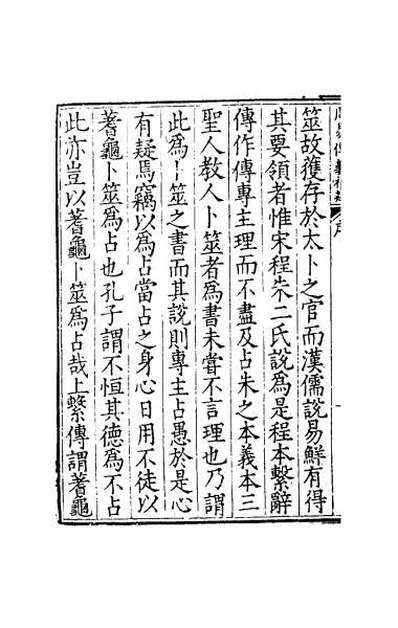 筮故獲存於太卜之官而漢儒說易鮮有得
其要領者惟宋程朱二氏說為是程本繫辭
傳作傳專主理而不盡及占朱之本義本三
聖人教人卜筮者為書未嘗不言理也乃謂
此為卜筮之書而其說則專主占愚於是心
有疑焉竊以為占當占之身心日用不徒以
蓍龜卜筮為占也孔子謂不恒其德為不占
此亦豈以蓍龜卜筮為占哉上繫傳謂蓍龜